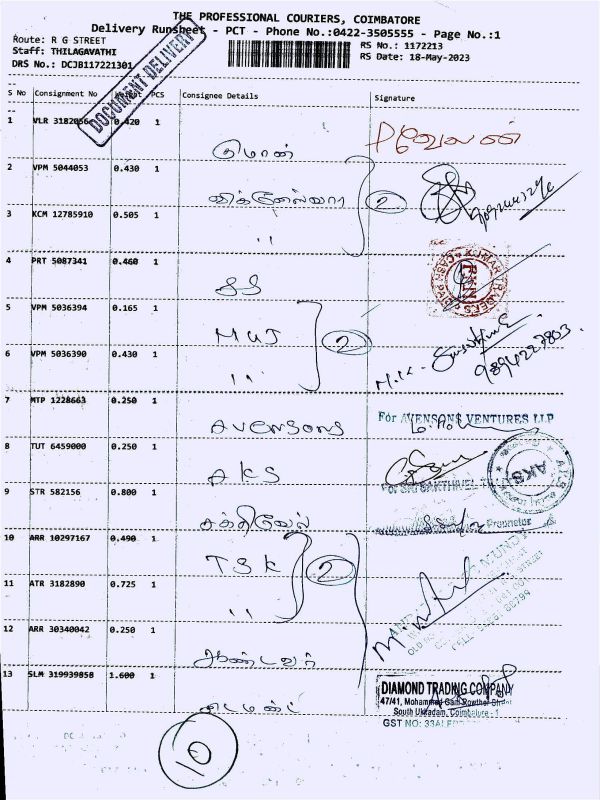 THE PROFESSIONAL COURIERS, COIMBATORE
Delivery Runsheet - PCT - Phone No.:0422-3505555 - Page No.:1
Route: R G STREET
Staff: THILAGAVATHI
DRS No.: DCJB117221301
RS No.: 1172213
RS Date: 18-May-2023
DOCUMENT DELIVERY
S No Consignment No Weight PCS Consignee Details Signature
1 VLR 3182056 0.420 1 குமரன் P வேலன்
2 VPM 5044053 0.430 1 விக்னேஸ்வரா 2
3 KCM 12785910 0.505 1 "
4 PRT 5087341 0.460 1 SS
5 VPM 5036394 0.165 1 MUJ 2
6 VPM 5036390 0.430 1 " 9894227803
7 MTP 1228663 0.250 1 Avensons For AVENSONS VENTURES LLP
8 TUT 6459000 0.250 1 AKS AKS
For SRI SAKTHIVEL
9 STR 582156 0.800 1 சக்திவேல் Proprietor
10 ARR 10297167 0.490 1 TSK 2
11 ATR 3182890 0.725 1 "
12 ARR 30340042 0.250 1 ஆண்டவர்
13 SLM 319939858 1.600 1 டைமண்ட் DIAMOND TRADING COMPANY
47/41, Mohammed Gani Rowther Street
South Ukkadam, Coimbatore - 1
GST NO: 33
10